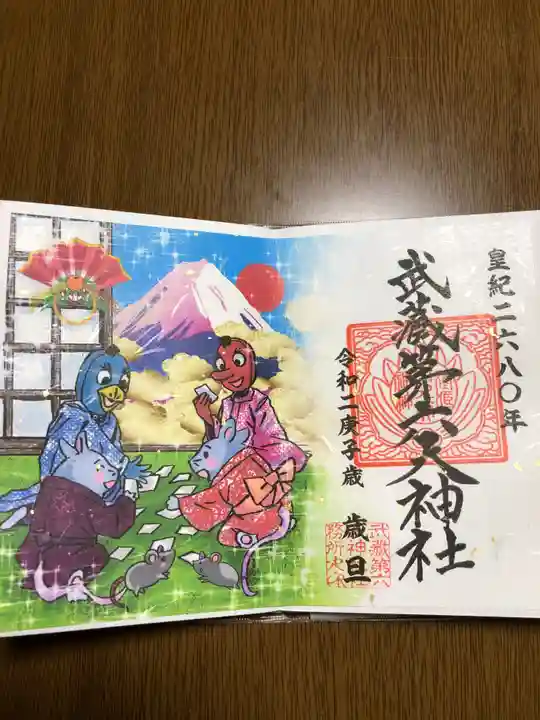 皇紀二六八〇年
武蔵第六天神社
令和二庚子歳
歳旦
武蔵第六
天神社